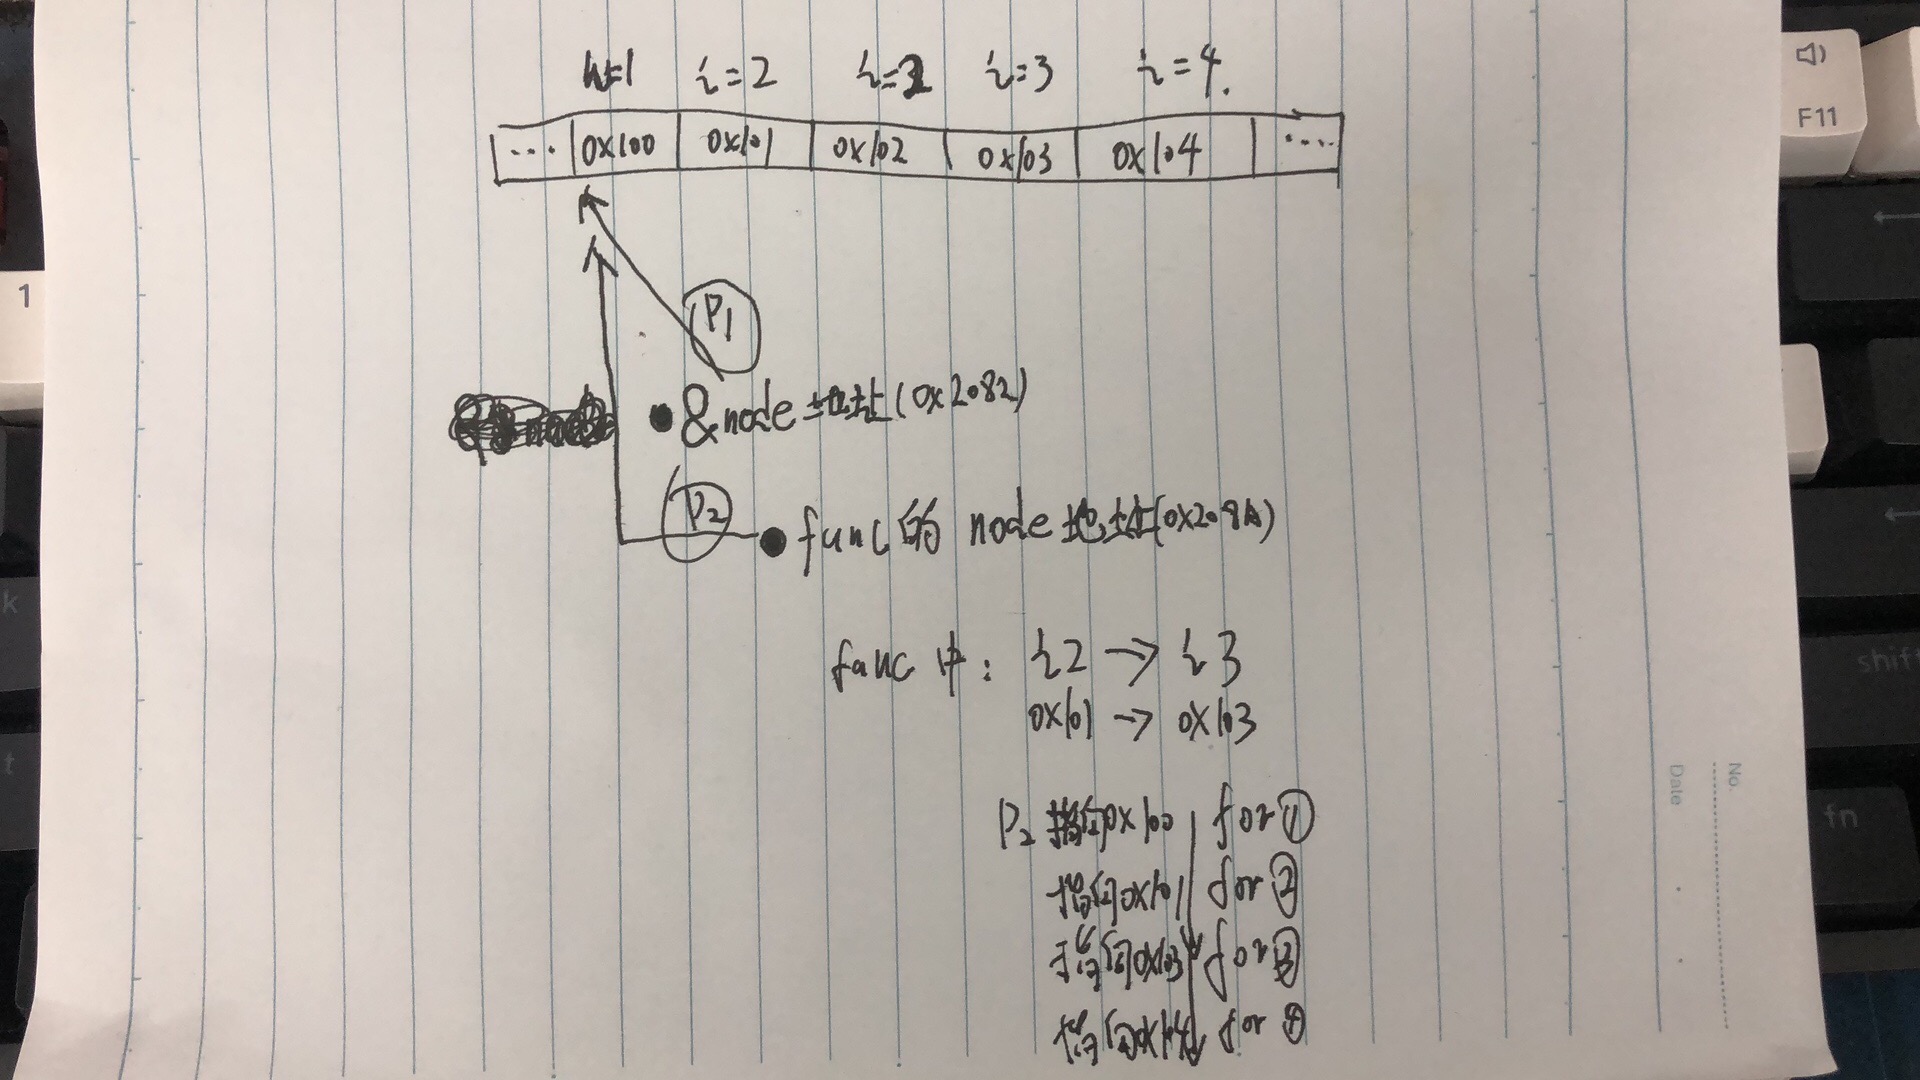 i=1 i=2 i=2 i=3 i=4.
... 0x100 0x101 0x102 0x103 0x104 ....
P1
&node地址(0x2082)
P2
func的 node地址(0x208A)
func中: i2 → i3
0x101 → 0x103
P2 指向0x100 for①
指向0x101 for②
指向0x103 for③
指向0x104 for④
F11
1
k
t
shift
fn
No.
Date